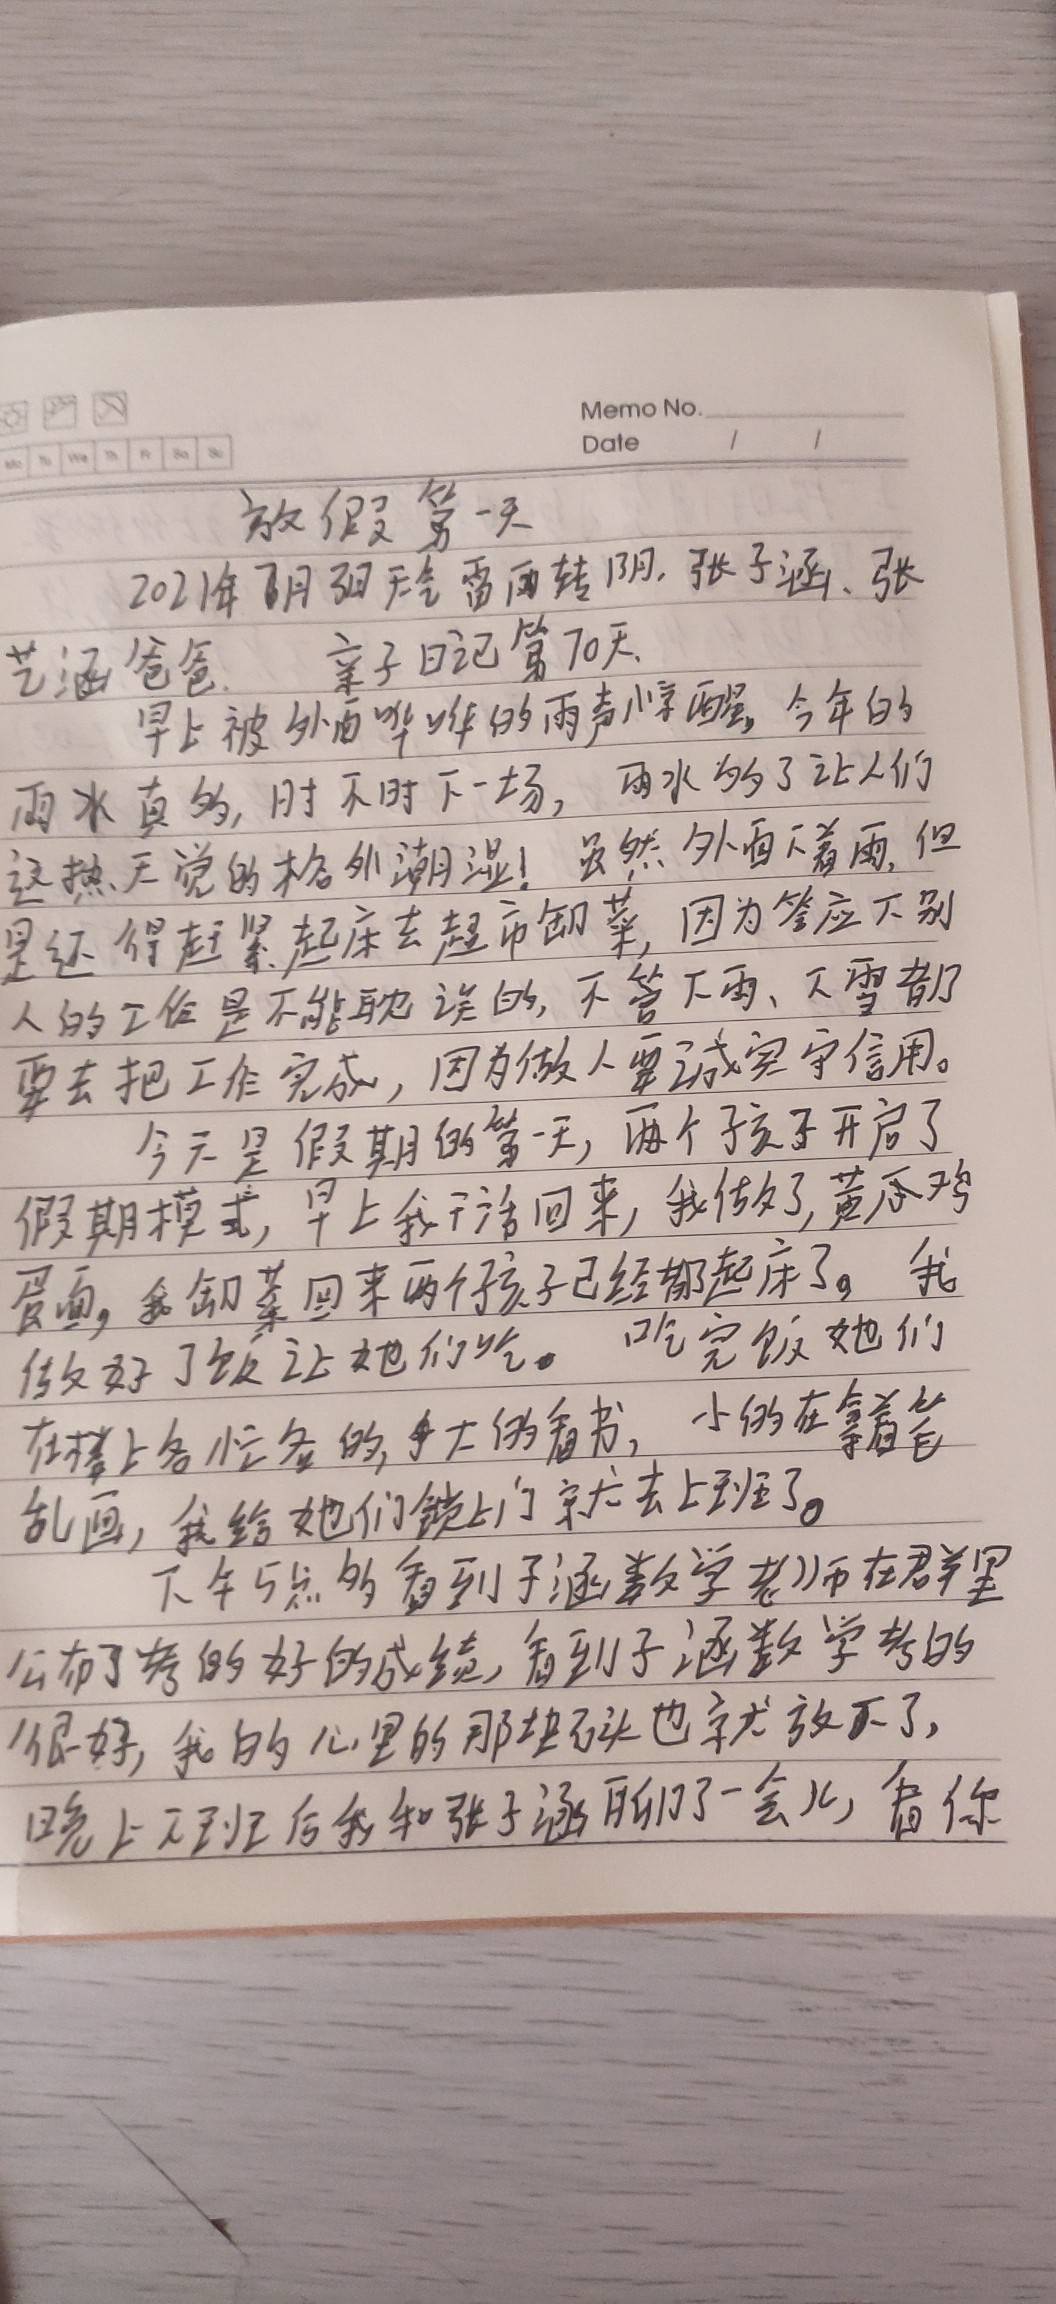 Memo No.
Date / /
Mo Tu We Th Fr Sa Su
放假第一天
2021年 月 日天气雷雨转阴. 张子涵、张
艺涵爸爸. 亲子日记第70天.
早上被外面哗哗的雨声惊醒,今年的
雨水真多,时不时下一场,雨水多了让人们
这热天觉的格外潮湿!虽然外面下着雨,但
是还得赶紧起床去超市卸菜,因为答应下别
人的工作是不能耽误的,不管下雨、下雪都
要去把工作完成,因为做人要诚实守信用。
今天是假期的第一天,两个孩子开启了
假期模式,早上我干活回来,我做了,黄瓜鸡
蛋面,我卸菜回来两个孩子已经都起床了。我
做好了饭让她们吃。吃完饭她们
在楼上各忙各的,大的看书,小的在拿着笔
乱画,我给她们锁上门就去上班了。
下午5点多看到子涵数学老师在群里
公布了考的好的成绩,看到子涵数学考的
很好,我的心里的那块石头也就放下了,
晚上下班后我和张子涵聊了一会儿,看你